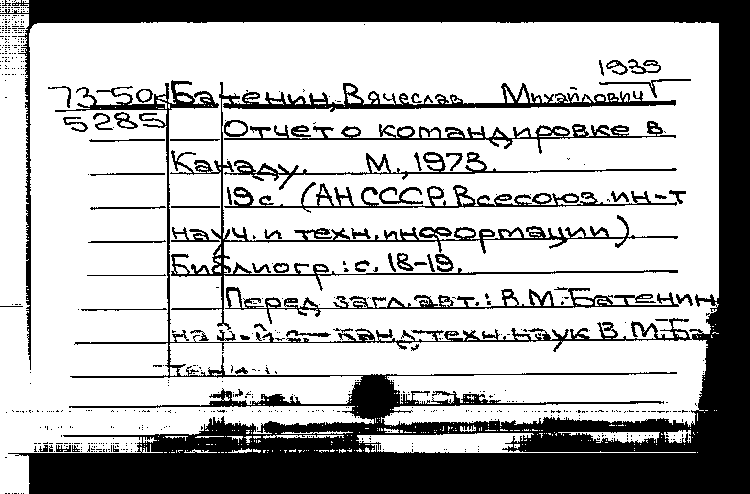 1939
73-50к Батенин, Вячеслав Михайлович
5285 Отчет о командировке в
Канаду. М., 1973.
19 с. (АН СССР. Всесоюз. ин-т
науч. и техн. информации).
Библиогр.: с. 18-19.
Перед загл. авт.: В.М. Батенин,
на 3-й с. — канд. техн. наук В.М. Ба-
тенин.